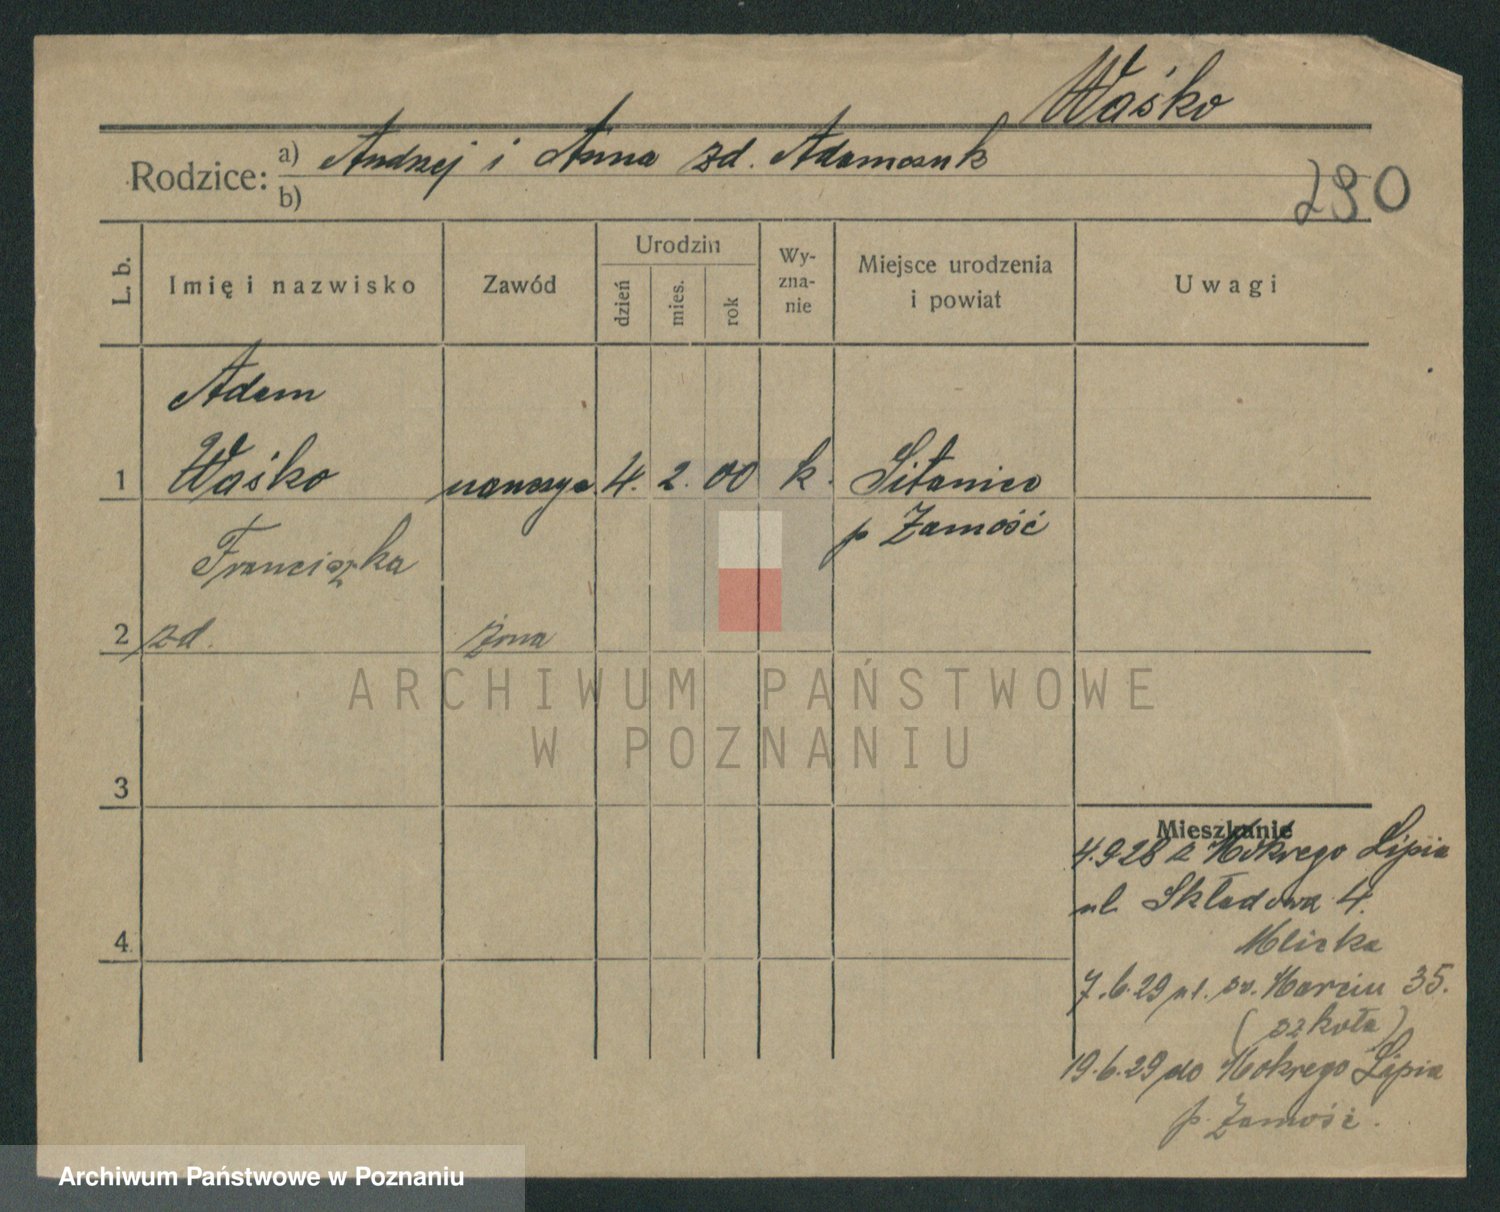 Waśko
Rodzice: a) Andrzej i Anna zd. Adamczuk
b)
290
L. b.
Imię i nazwisko
Zawód
Urodzin
dzień
mies.
rok
Wy-
zna-
nie
Miejsce urodzenia
i powiat
Uwagi
Adam
1 Waśko nauczyc. 4. 2. 00 k. Sitaniec
p Zamość
Franciszka
2 zd. żona
ARCHIWUM PAŃSTWOWE
W POZNANIU
3
Mieszkanie
4.9.28 z Mokrego Lipia
ul. Składowa 4.
Mlicka
4
7.6.29 ul. św. Marcin 35.
(szkoła)
19.6.29 do Mokrego Lipia
p. Zamość.
Archiwum Państwowe w Poznaniu